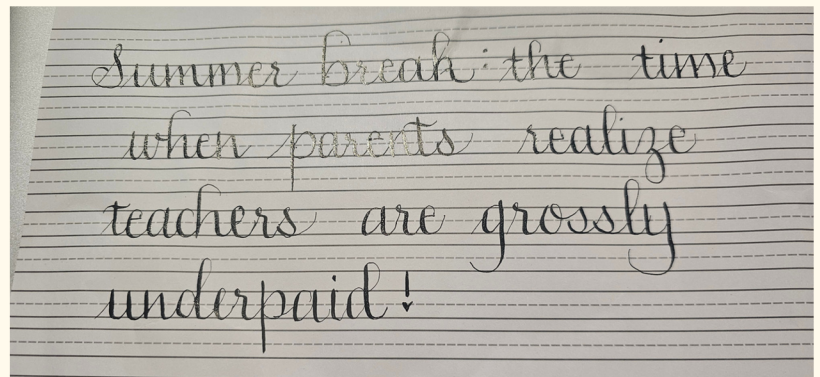 Summer break: the time
when parents realize
teachers are grossly
underpaid!